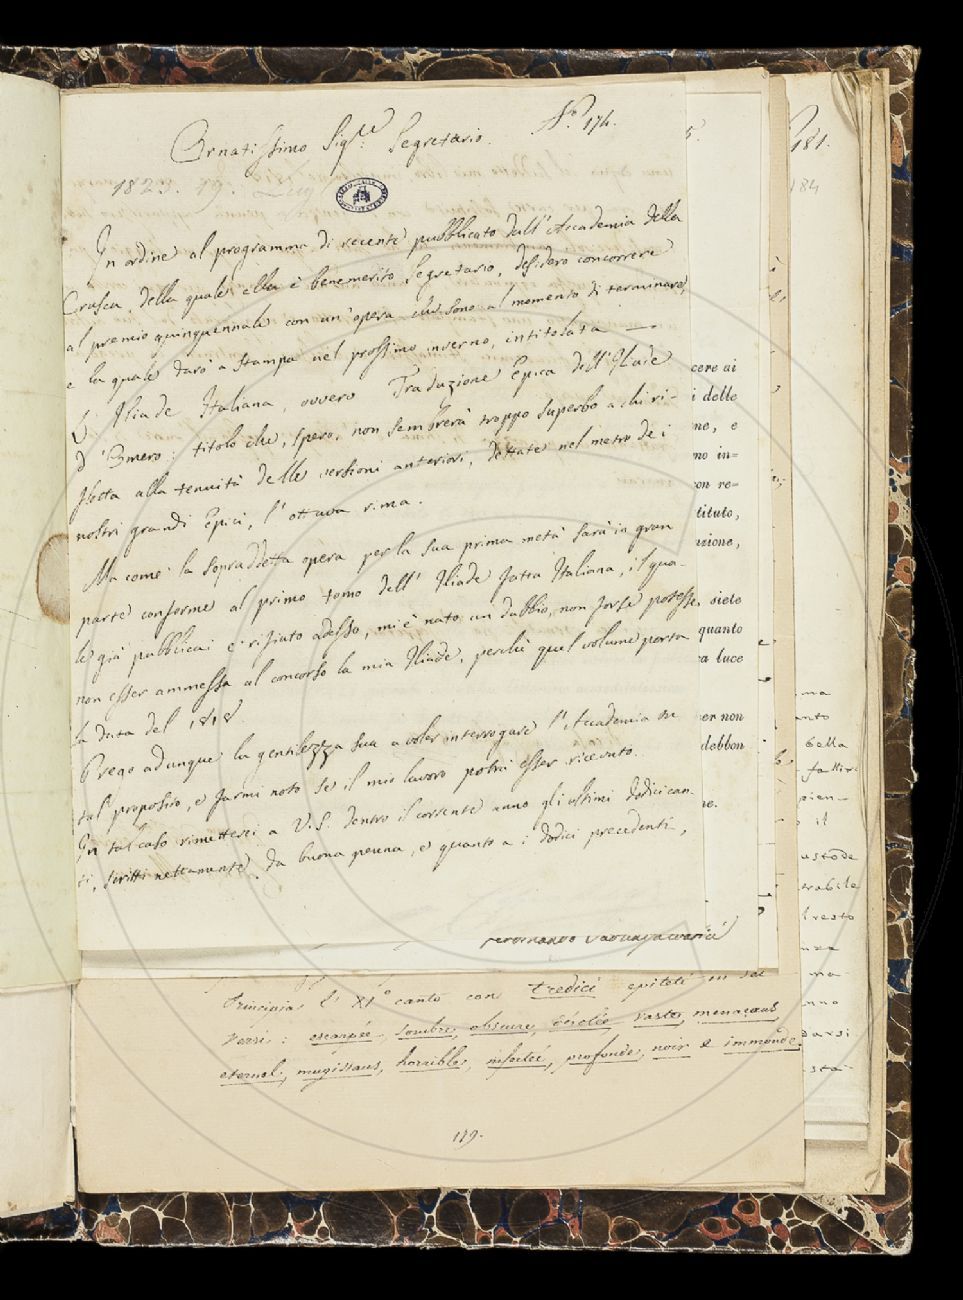 N.° 174.
Ornatissimo Sig.re Segretario.
1823. 19. Lug
In ordine al programma di recente pubblicato dall'Accademia della
Crusca, della quale ella è benemerito Segretario, desidero concorrere
al premio quinquennale con un'opera che sono al momento di terminare,
e la quale darò a stampa nel prossimo inverno, intitolata —
L'Iliade Italiana, ovvero Traduzione Epica dell'Iliade
d'Omero: titolo che, spero, non sembrerà troppo superbo a chi ri-
fletta alla tenuità delle versioni anteriori, dettate nel metro de i
nostri grandi Epici, l'ottava rima.
Ma come la sopraddetta opera per la sua prima metà sarà in gran
parte conforme al primo tomo dell'Iliade fatta Italiana, il qua-
le già pubblicai e rifiuto adesso, mi è nato un dubbio, non forse potesse
non esser ammessa al concorso la mia Iliade, perchè quel volume porta
la data del 1818.
Prego adunque la gentilezza sua a voler interrogare l'Accademia su
tal proposito, e farmi noto se il mio lavoro potrà esser ricevuto.
In tal caso rimetterei a V.S. dentro il corrente anno gli ultimi dodici can-
ti, scritti nettamente da buona penna, e quanto a i dodici precedenti,
Ferdinando
Principia l'XI° canto con tredici epiteti in sei
versi: escarpée, sombre, obscure, vaste, menaçant,
eternel, mugissant, horrible, infectée, profonde, noir e immonde.
179.
181.
184
cere ai
i delle
ne, e
no in-
on re-
tituto,
nzione,
siete
quanto
ca luce
er non
debbon
ne.
bella
pien-
il
trabile
resto